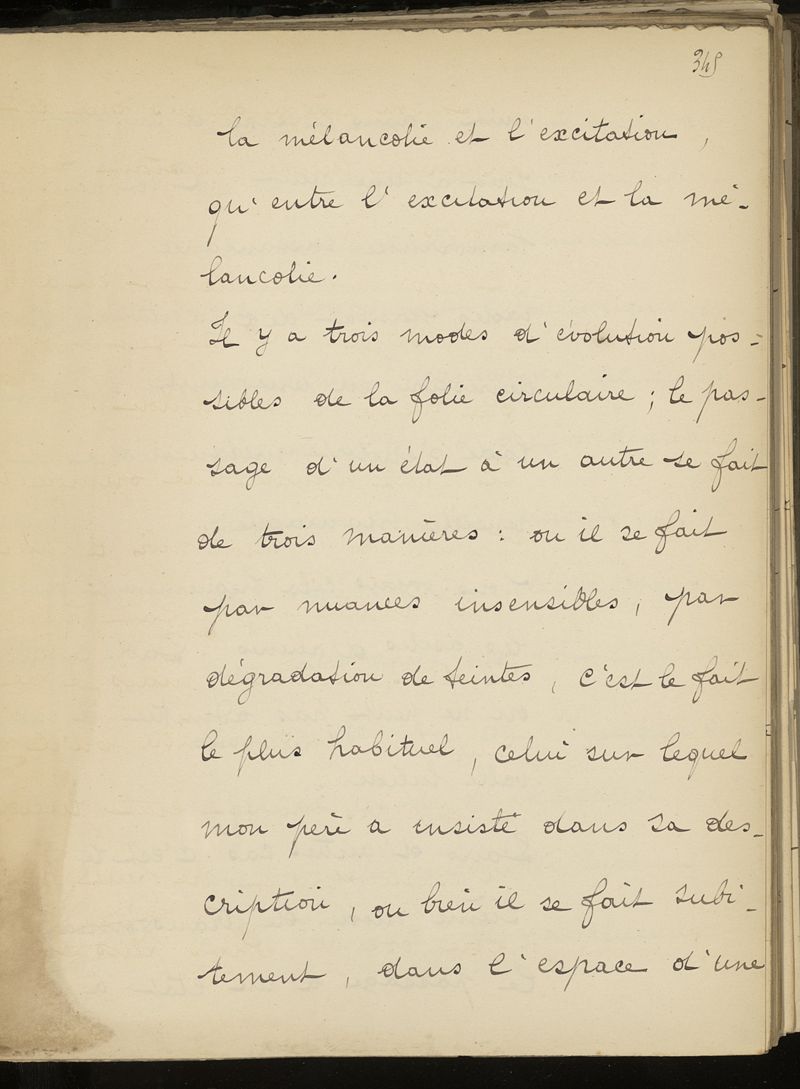 345
la mélancolie et l'excitation,
qu'entre l'excitation et la mé-
lancolie.
Il y a trois modes d'évolution pos-
sibles de la folie circulaire; le pas-
sage d'un état à un autre se fait
de trois manières: ou il se fait
par nuances insensibles, par
dégradation de teintes, c'est le fait
le plus habituel, celui sur lequel
mon père a insisté dans sa des-
cription, ou bien il se fait subi-
tement, dans l'espace d'une